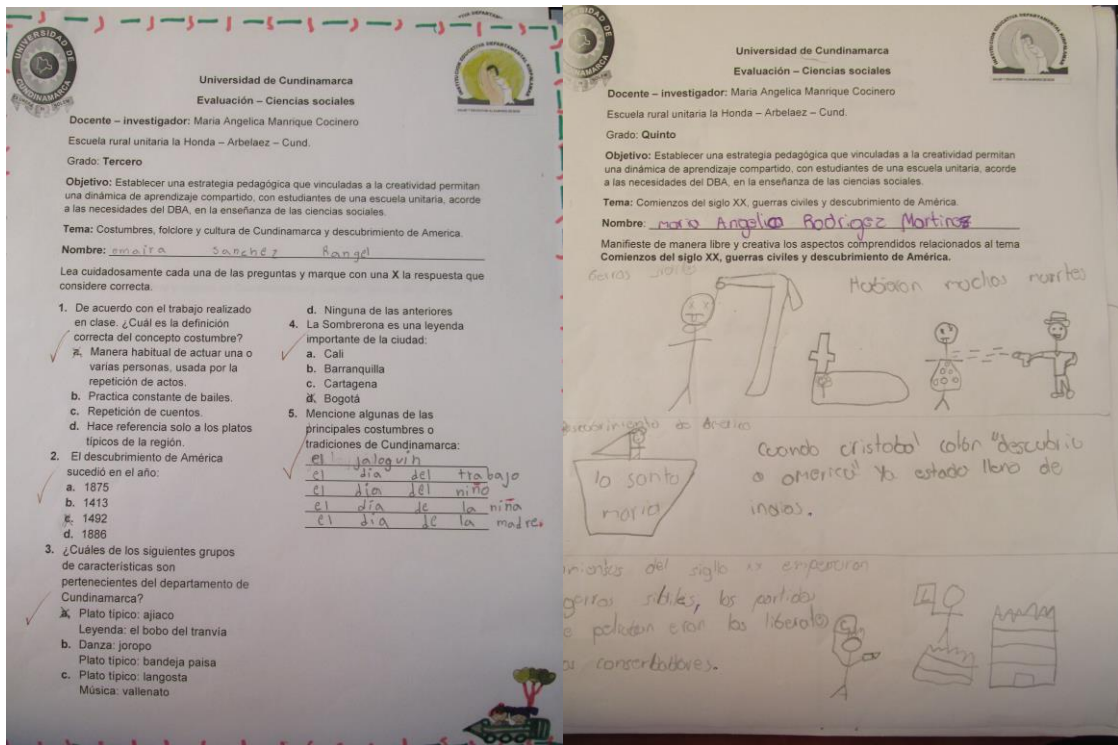 UNIVERSIDAD DE
CUNDINAMARCA
Universidad de Cundinamarca
Evaluación – Ciencias sociales
Docente – investigador: Maria Angelica Manrique Cocinero
Escuela rural unitaria la Honda – Arbelaez – Cund.
Grado: Tercero
Objetivo: Establecer una estrategia pedagógica que vinculadas a la creatividad permitan
una dinámica de aprendizaje compartido, con estudiantes de una escuela unitaria, acorde
a las necesidades del DBA, en la enseñanza de las ciencias sociales.
Tema: Costumbres, folclore y cultura de Cundinamarca y descubrimiento de America.
Nombre: omaira Sanchez Rangel
Lea cuidadosamente cada una de las preguntas y marque con una X la respuesta que
considere correcta.
1. De acuerdo con el trabajo realizado
en clase. ¿Cuál es la definición
correcta del concepto costumbre?
a. Manera habitual de actuar una o
varias personas, usada por la
repetición de actos.
b. Practica constante de bailes.
c. Repetición de cuentos.
d. Hace referencia solo a los platos
típicos de la región.
2. El descubrimiento de América
sucedió en el año:
a. 1875
b. 1413
c. 1492
d. 1886
3. ¿Cuáles de los siguientes grupos
de características son
pertenecientes del departamento de
Cundinamarca?
a. Plato típico: ajiaco
Leyenda: el bobo del tranvía
b. Danza: joropo
Plato típico: bandeja paisa
c. Plato típico: langosta
Música: vallenato
d. Ninguna de las anteriores
4. La Sombrerona es una leyenda
importante de la ciudad:
a. Cali
b. Barranquilla
c. Cartagena
d. Bogotá
5. Mencione algunas de las
principales costumbres o
tradiciones de Cundinamarca:
el jaloguin
el día del trabajo
el día del niño
el día de la niña
el día de la madre.
Universidad de Cundinamarca
Evaluación – Ciencias sociales
Docente – investigador: Maria Angelica Manrique Cocinero
Escuela rural unitaria la Honda – Arbelaez – Cund.
Grado: Quinto
Objetivo: Establecer una estrategia pedagógica que vinculadas a la creatividad permitan
una dinámica de aprendizaje compartido, con estudiantes de una escuela unitaria, acorde
a las necesidades del DBA, en la enseñanza de las ciencias sociales.
Tema: Comienzos del siglo XX, guerras civiles y descubrimiento de América.
Nombre: maria Angelica Rodrigez Martines
Manifieste de manera libre y creativa los aspectos comprendidos relacionados al tema
Comienzos del siglo XX, guerras civiles y descubrimiento de América.
Habiaron muchos muertes
la santa
maria
Cuando cristobal colón "descubrio
a america" Ya estado lleno de
indios.
del siglo xx empesaron
sibiles, los partidos
peliaban eran los liberales
conserbadores.
L
C